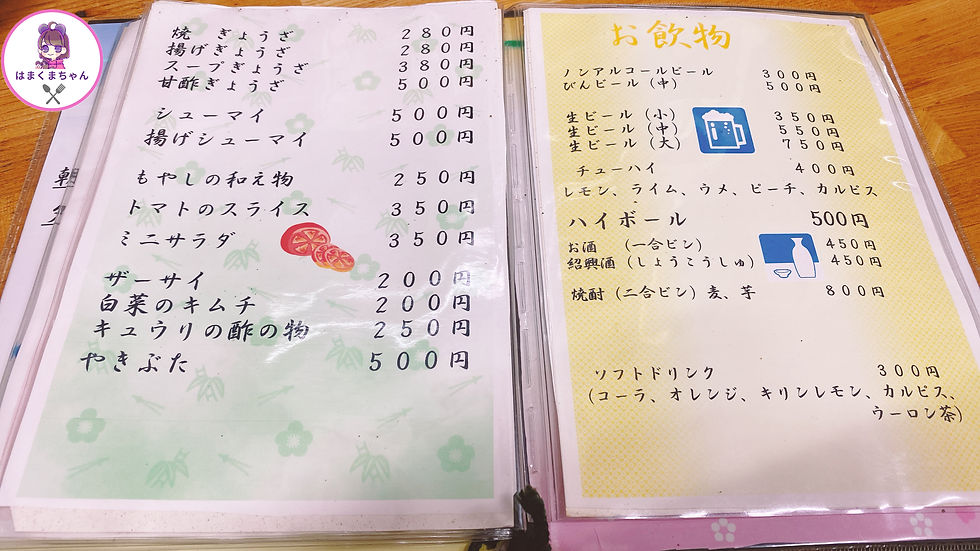 はまくまちゃん
焼　ぎょうざ　２８０円
揚げぎょうざ　２８０円
スープぎょうざ　３８０円
甘酢ぎょうざ　５００円
シューマイ　５００円
揚げシューマイ　５００円
もやしの和え物　２５０円
トマトのスライス　３５０円
ミニサラダ　３５０円
ザーサイ　２００円
白菜のキムチ　２００円
キュウリの酢の物　２５０円
やきぶた　５００円
お飲物
ノンアルコールビール　３００円
びんビール（中）　５００円
生ビール（小）　３５０円
生ビール（中）　５５０円
生ビール（大）　７５０円
チューハイ　４００円
レモン、ライム、ウメ、ピーチ、カルピス
ハイボール　500円
お酒　（一合ビン）　４５０円
紹興酒（しょうこうしゅ）　４５０円
焼酎（二合ビン）麦、芋　８００円
ソフトドリンク　３００円
（コーラ、オレンジ、キリンレモン、カルピス、
ウーロン茶）